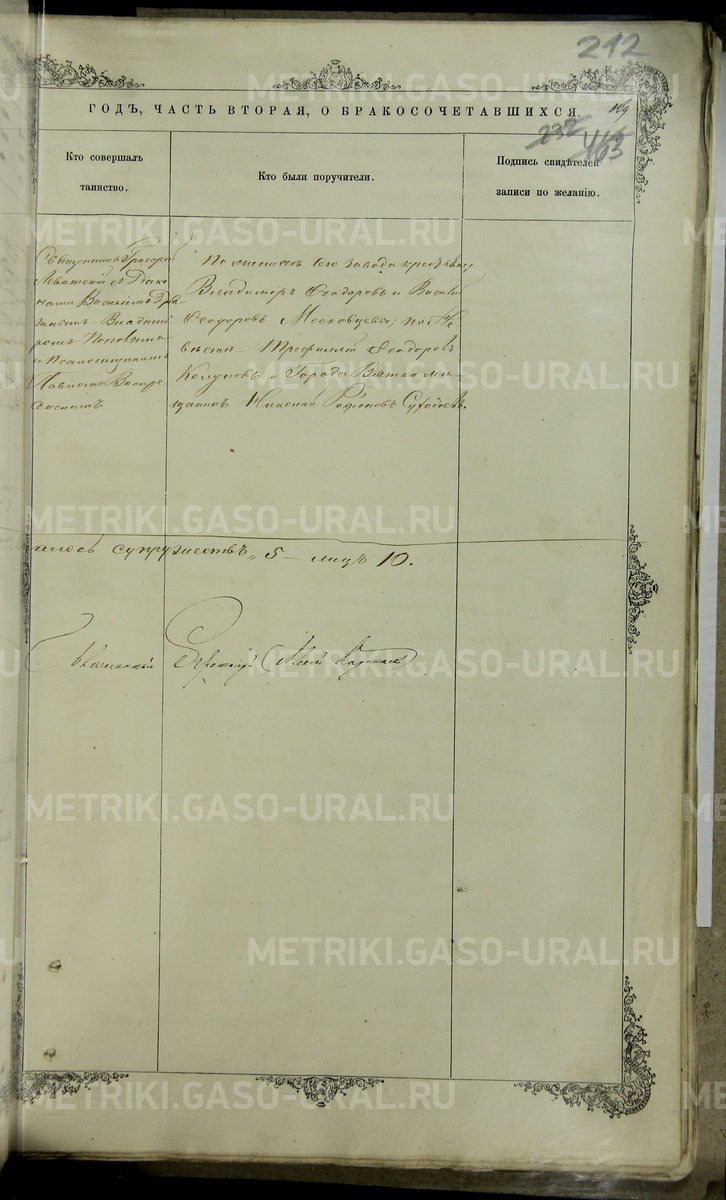 212
ГОДЪ, ЧАСТЬ ВТОРАЯ, О БРАКОСОЧЕТАВШИХСЯ.
232
103
Кто совершалъ таинство.
Кто были поручители.
Подпись свидѣтелей записи по желанію.
Священникъ Григорій
Левитскій съ Діако
нами Василіемъ
ганымъ Владими
ромъ Поповымъ
и Псаломщикомъ
Павломъ Воскре
сенскимъ.
По женихѣ Сего завода крестьяне
Владиміръ Ѳеодоровъ и Василій
Ѳеодоровъ Московцевы; по Не
вѣстѣ Трефилій Ѳеодоровъ
Колуновъ и Города Вятки мѣ
щанинъ Николай
алось супружествъ „5 — лицъ 10.
METRIKI.GASO-URAL.RU